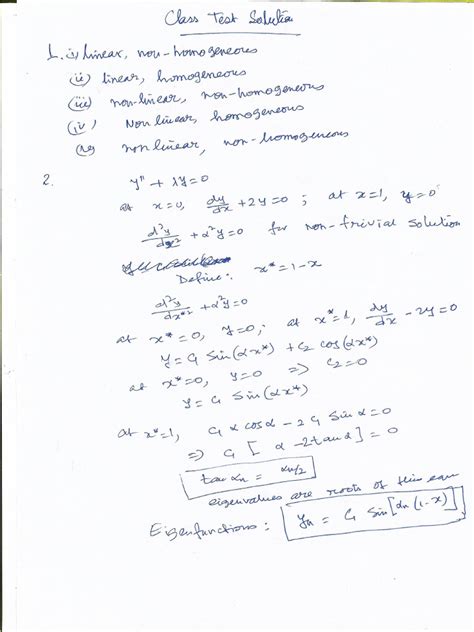 Class Test Solution
1. i) linear, non-homogeneous
(ii) linear, homogeneous
(iii) non-linear, non-homogeneous
(iv) Nonlinear, homogeneous
(v) nonlinear, non-homogeneous
2. y'' + λy=0
at x=0, dy/dx + 2y=0 ; at x=1, y=0
d²y/dx² + α²y=0 for non-trivial solution
Define: x*=1-x
d²y/dx*² + α²y=0
at x*=0, y=0; at x*=1, dy/dx - 2y=0
y=C₁ Sin(αx*) + C₂ cos(αx*)
at x*=0, y=0 => C₂=0
y=C₁ Sin(αx*)
at x*=1, C₁ α cosα - 2C₁ Sinα=0
=> C₁ [ α - 2tanα ] = 0
tan αn = αn/2
eigenvalues are roots of this eqn
Eigenfunctions: yn = C₁ Sin[αn(1-x)]